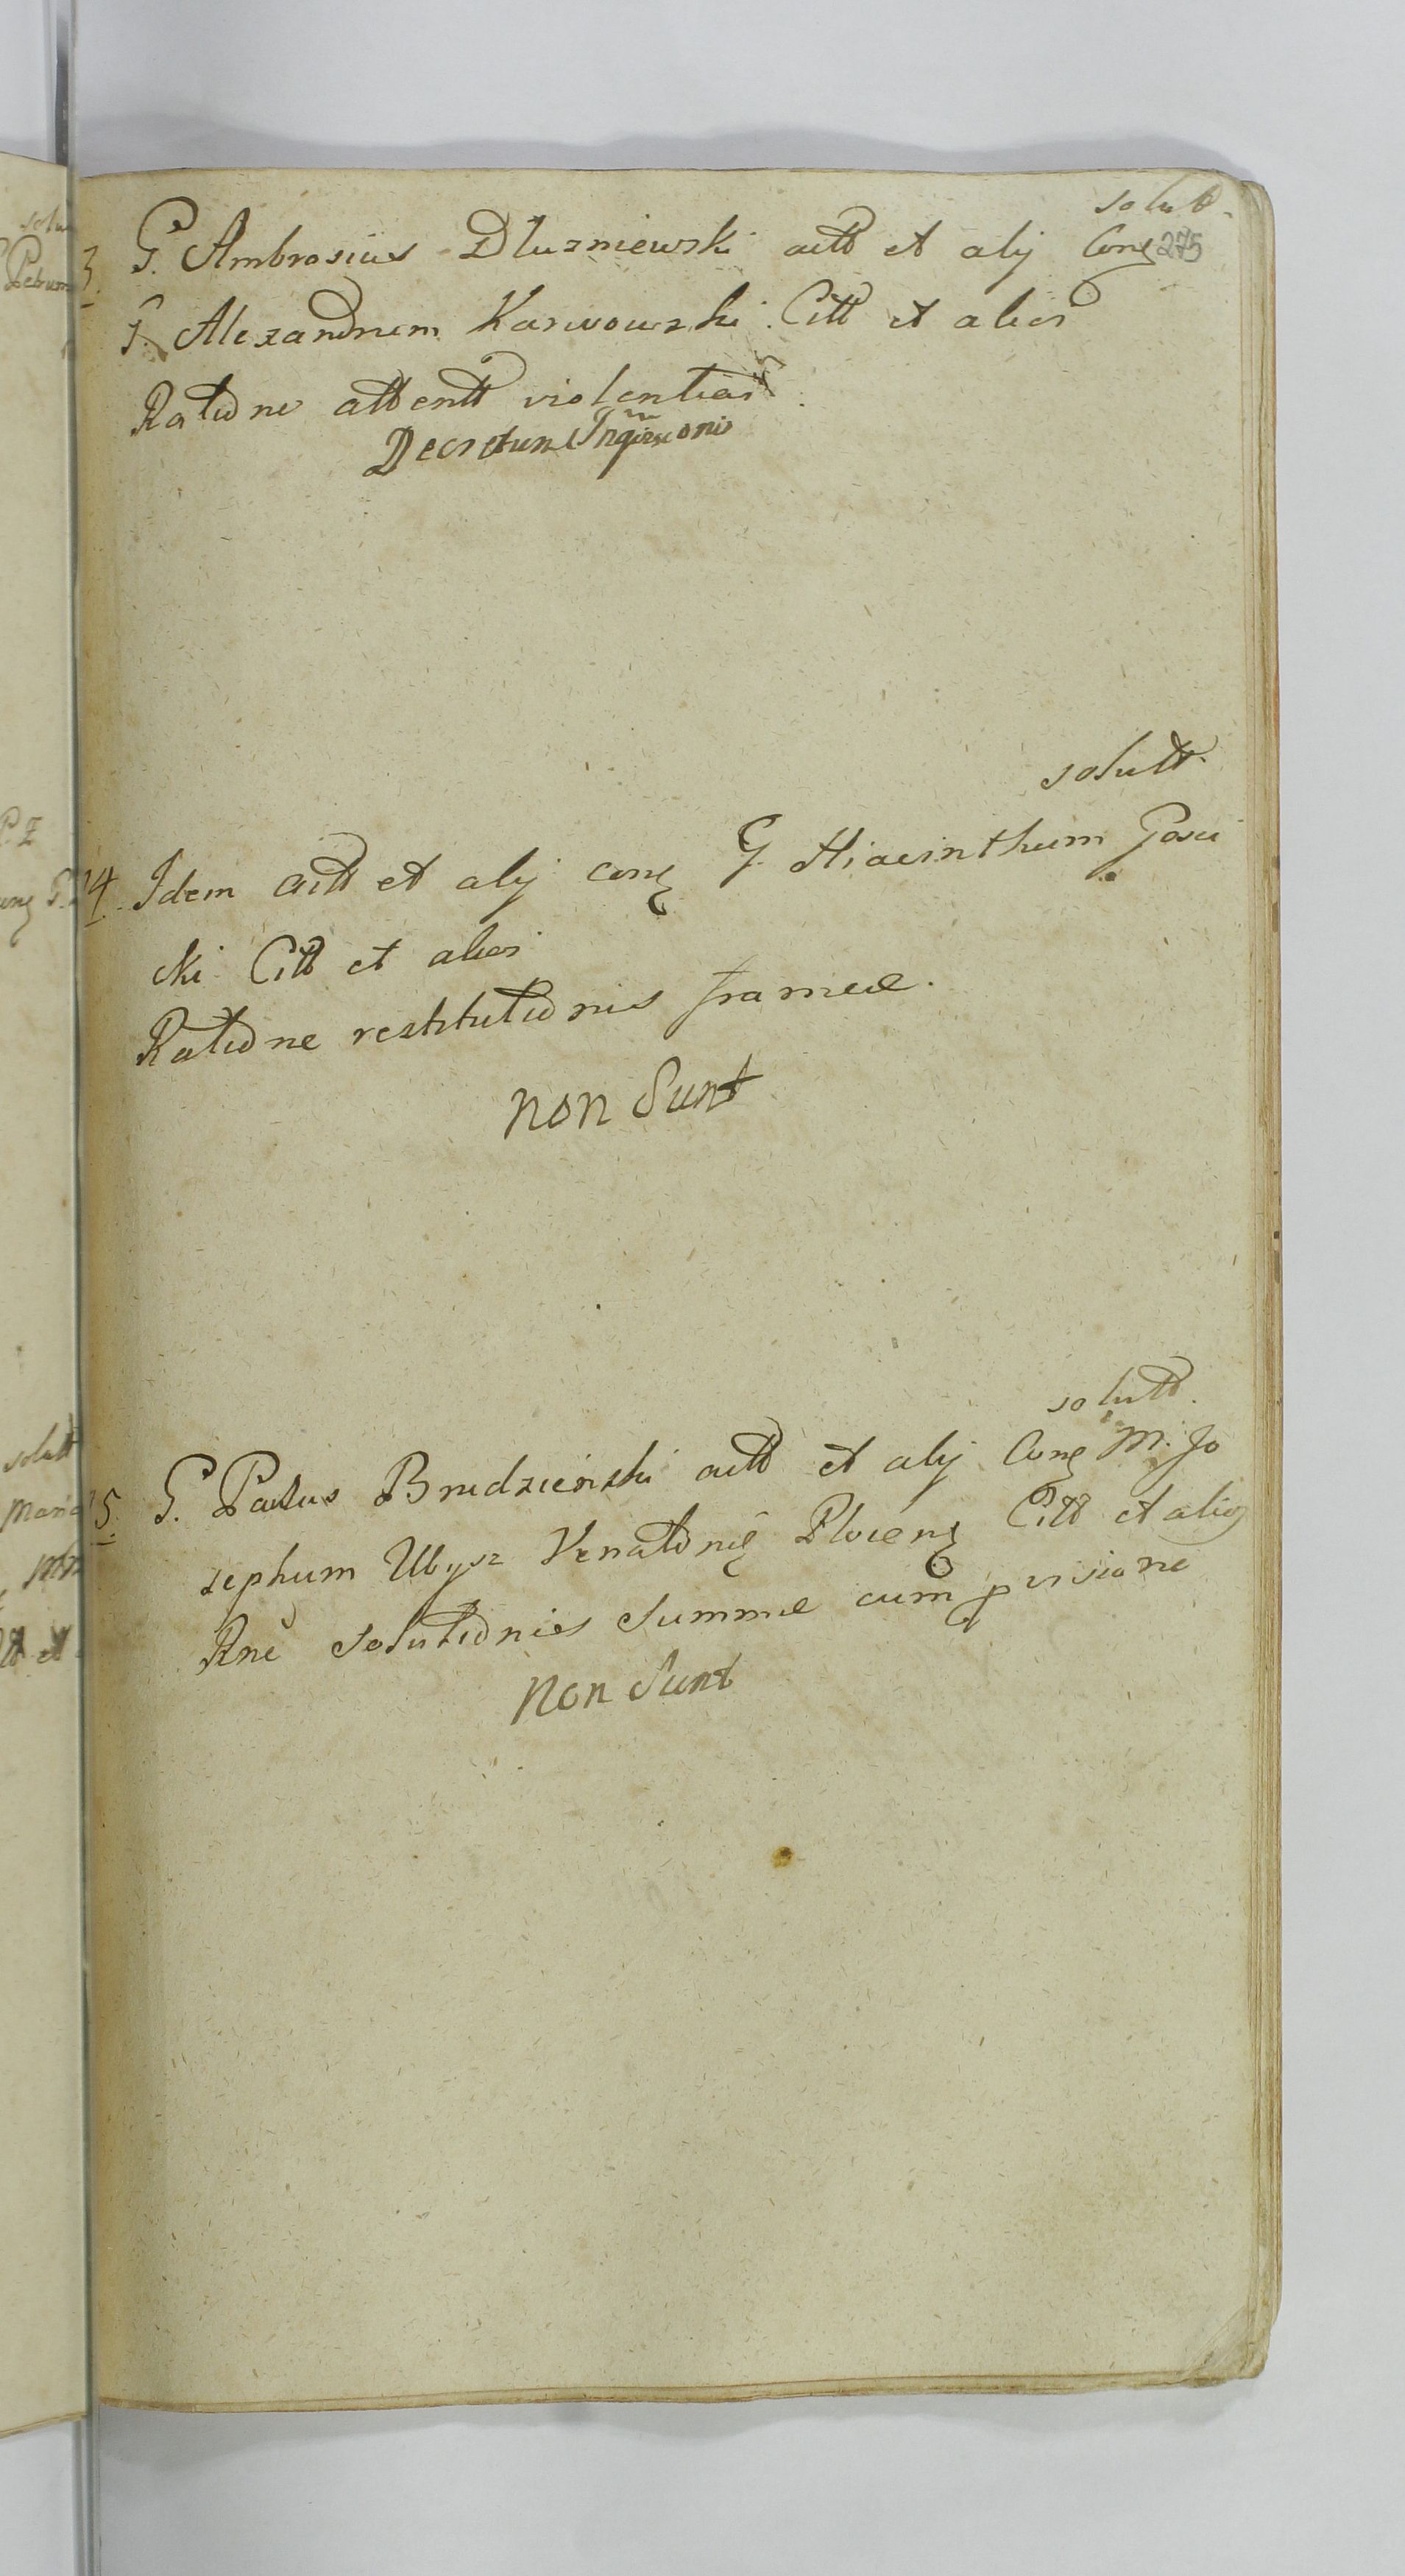 solutt.
3. G. Ambrosius Dluzniewski actt et alij Conq 275
G. Alexandrum Karwowski Citt et alios
Ratione attentt violentiar
Decretum Inquisionis
solutt.
14. Idem actt et alij conq G. Hiacinthum Gosci
cki Citt et alios
Ratione restitutionis frameæ.
non Sunt
solutt.
15. G. Paulus Brudzieński actt et alij Conq M. Jo
sephum Ubysz Venatorē Plocenq Citt et alioq
Rnē Solutionies Summæ cum provisione
Non Sunt